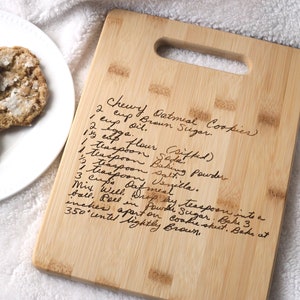 Chewy Oatmeal Cookies
2 cup Brown Sugar.
1 cup oil.
2 eggs.
1 ½ cup flour (sifted)
1 teaspoon Soda.
½ teaspoon Baking Powder
½ teaspoon Salt
1 teaspoon Vanilla.
3 cups Oatmeal
Mix Well. Drop by teaspoon into a
ball. Roll in Powder Sugar. Bake 3
inches apart on cookie sheet. Bake at
350° until lightly Brown.